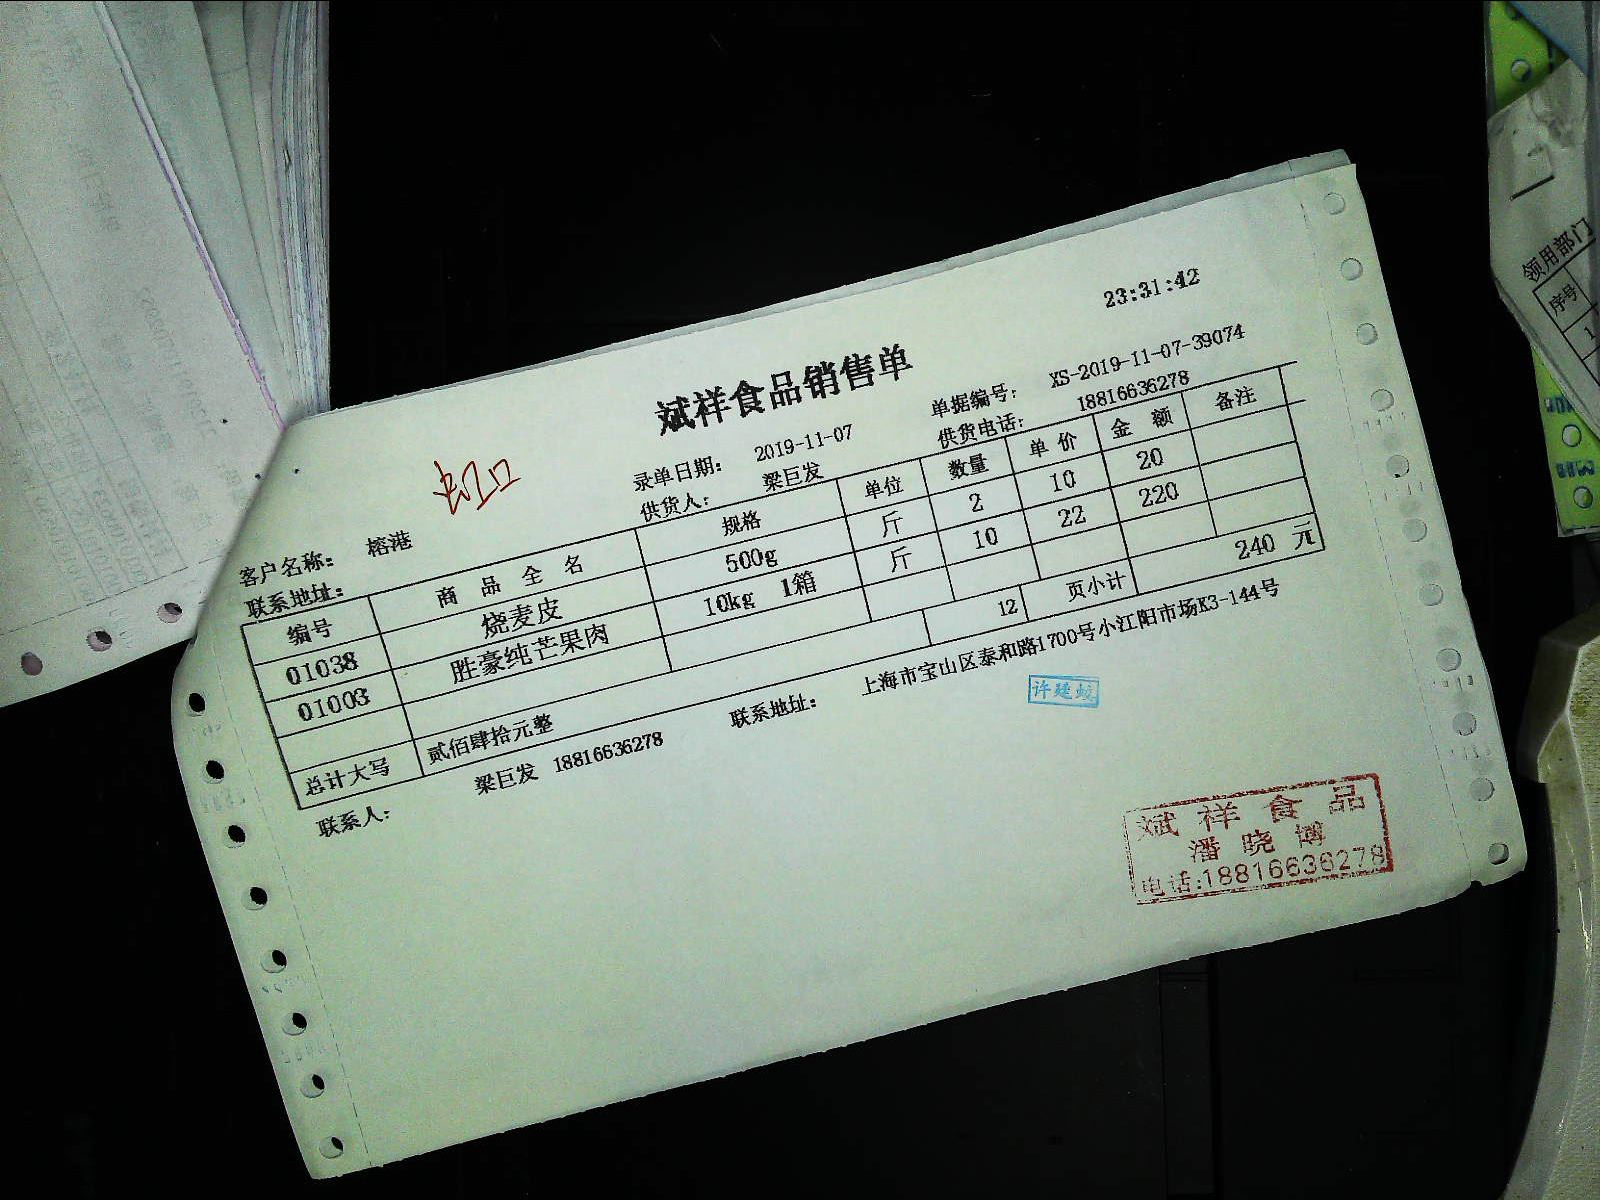 23:31:42
斌祥食品销售单
虹口
录单日期： 2019-11-07 单据编号： XS-2019-11-07-39074
客户名称： 榕港 供货人： 梁巨发 供货电话： 18816636278
联系地址：
编号 商品全名 规格 单位 数量 单价 金额 备注
01038 烧麦皮 500g 斤 2 10 20
01003 胜豪纯芒果肉 10kg 1箱 斤 10 22 220
总计大写 贰佰肆拾元整 12 页小计 240 元
联系人： 梁巨发 18816636278 联系地址： 上海市宝山区泰和路1700号小江阳市场K3-144号
许建蛟
斌祥食品
潘晓博
电话:18816636278
领用部门
序号
1